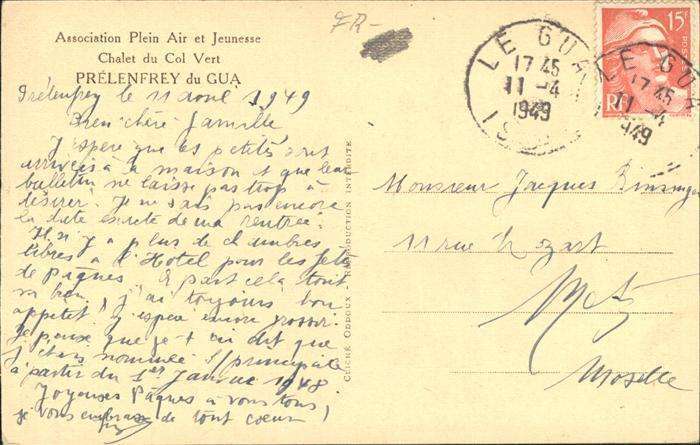 Association Plein Air et Jeunesse
Chalet du Col Vert
PRÉLENFREY du GUA
FR-
LE GUA
17 45
11 - 4
1949
IS
15F
RF
LE GUA
17 45
11 - 4
1949
Prélenfrey le 11 avril 1949
Bien chère famille
J'espère que les petits sont
arrivés à la maison et que leur
bulletin ne laisse pas trop à
désirer. Je ne sais pas encore
la date exacte de ma rentrée.
Il n'y a plus de chambres
libres à l'Hotel pour les fêtes
de Pâques. A part cela tout
va bien, j'ai toujours bon
appetit. J'espère encore grossir.
Je pense que je t'ai dit que
j'étais nommée principale
à partir du 1er Janvier 1948
Joyeuses Pâques à vous tous,
je vous embrasse de tout coeur
CLICHÉ ODDOUX - REPRODUCTION INTERDITE
Monsieur Jacques
11 rue Mozart
Metz
Moselle